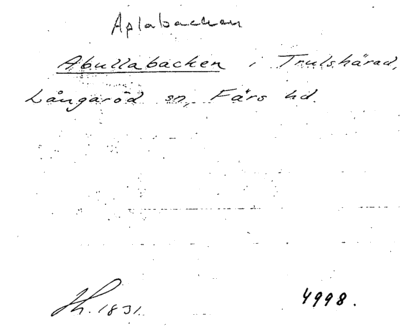 Aplabacken
Abullabacken i Trulshärad,
Långaröd sn, Färs hd.
Sk. 1831. 4998.